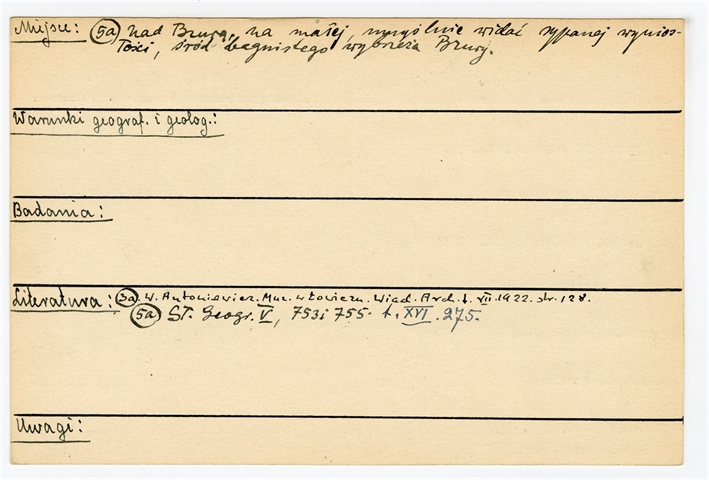 Miejsce: (5a) nad Bzurą, na małej, umyślnie widać sypanej wynios-
łości, śród bagnistego wybrzeża Bzury.
Warunki geograf. i geolog.:
Badania:
Literatura: (3a) W. Antoniewicz. Muz. w Łowiczu. Wiad. Arch. t. VII. 1922. str. 128.
(5a) Sł. Geogr. V, 753 i 755. t. XVI. 275.
Uwagi: